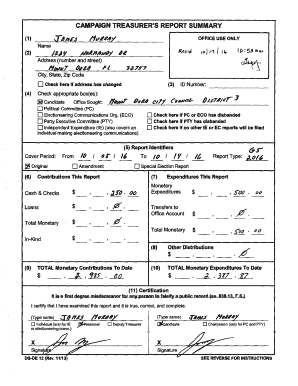 CAMPAIGN TREASURER'S REPORT SUMMARY
(1) JAMES MURRAY
Name
OFFICE USE ONLY
(2) 1234 NORMANDY DR
Address (number and street)
Rec'd 10/17/16 10:58am
MOUNT DORA FL 32757
City, State, Zip Code
Check here if address has changed
(3) ID Number:
(4) Check appropriate box(es):
Candidate Office Sought: MOUNT DORA CITY COUNCIL DISTRICT 3
Political Committee (PC)
Electioneering Communications Org. (ECO)
Check here if PC or ECO has disbanded
Party Executive Committee (PTY)
Check here if PTY has disbanded
Independent Expenditure (IE) (also covers an individual making electioneering communications)
Check here if no other IE or EC reports will be filed
(5) Report Identifiers
Cover Period: From 10 / 08 / 16 To 10 / 14 / 16 Report Type: G5 2016
Original Amendment Special Election Report
(6) Contributions This Report
(7) Expenditures This Report
Cash & Checks $ 250.00
Monetary Expenditures $ 500.00
Loans $ 0
Transfers to Office Account $ 0
Total Monetary $ 0
Total Monetary $ 500.00
In-Kind $
(8) Other Distributions
$ 0
(9) TOTAL Monetary Contributions To Date
$ 2,985.00
(10) TOTAL Monetary Expenditures To Date
$ 2,387.87
(11) Certification
It is a first degree misdemeanor for any person to falsify a public record (ss. 839.13, F.S.)
I certify that I have examined this report and it is true, correct, and complete:
(Type name) JAMES MURRAY
(Type name) JAMES MURRAY
Individual (only for IE or electioneering comm.) Treasurer Deputy Treasurer
Candidate Chairperson (only for PC and PTY)
X
X
Signature
Signature
DS-DE 12 (Rev. 11/13)
SEE REVERSE FOR INSTRUCTIONS